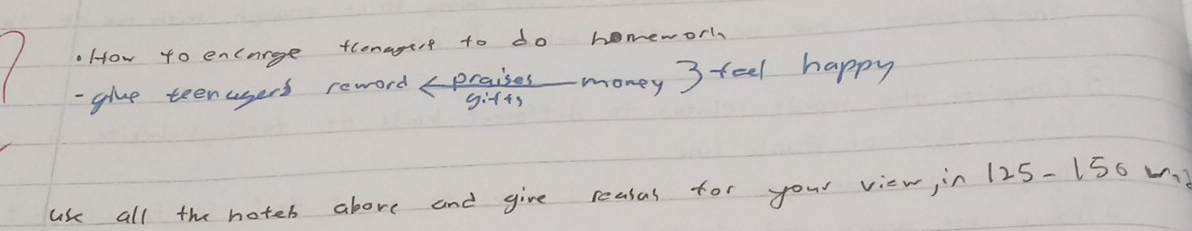 ? • How to encorge teenagers to do homework
- give teenagers reword < praises money } feel happy
gifts
use all the notes above and give reasas for your view, in 125 - 150 wrd